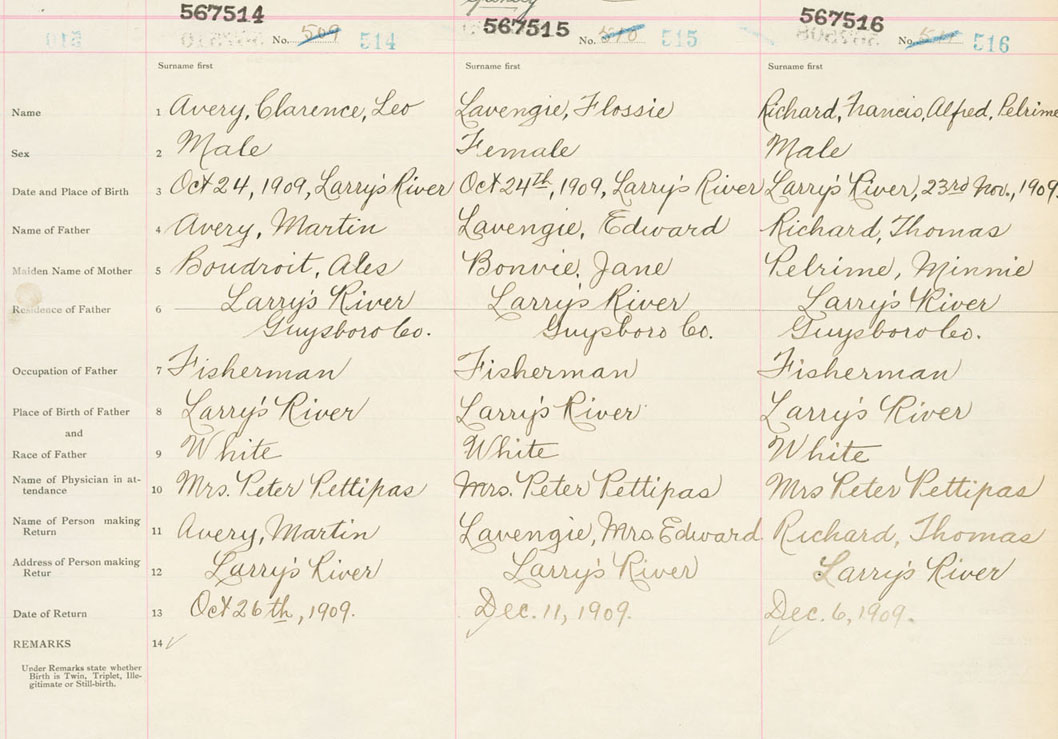 567514 567515 567516
No. 509 514 No. 510 515 No. 511 516
Surname first Surname first Surname first
Name 1 Avery, Clarence, Leo Lavengie, Flossie Richard, Francis, Alfred, Pelrime
Sex 2 Male Female Male
Date and Place of Birth 3 Oct 24, 1909, Larry's River Oct 24th, 1909, Larry's River Larry's River, 23rd Nov., 1909.
Name of Father 4 Avery, Martin Lavengie, Edward Richard, Thomas
Maiden Name of Mother 5 Boudroit, Ales Bonvie, Jane Pelrime, Minnie
Residence of Father 6 Larry's River Larry's River Larry's River
Guysboro Co. Guysboro Co. Guysboro Co.
Occupation of Father 7 Fisherman Fisherman Fisherman
Place of Birth of Father 8 Larry's River Larry's River Larry's River
and
Race of Father 9 White White White
Name of Physician in at-
tendance 10 Mrs. Peter Pettipas Mrs. Peter Pettipas Mrs Peter Pettipas
Name of Person making
Return 11 Avery, Martin Lavengie, Mrs Edward Richard, Thomas
Address of Person making
Retur 12 Larry's River Larry's River Larry's River
Date of Return 13 Oct 26th, 1909. Dec. 11, 1909. Dec. 6, 1909.
REMARKS 14
Under Remarks state whether
Birth is Twin, Triplet, Ille-
gitimate or Still-birth.